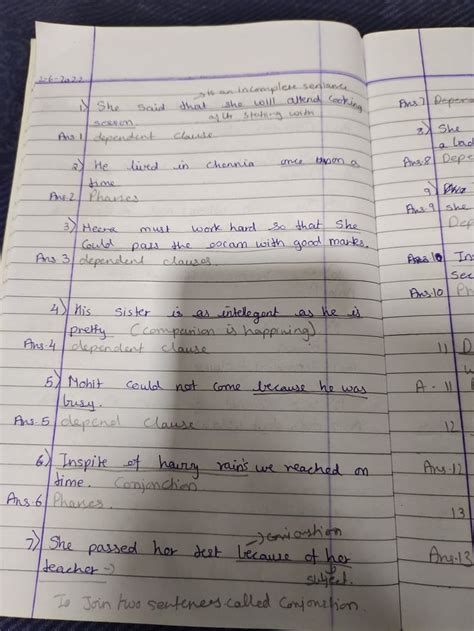 -6-2022
→ is an incomplete sentence
1) She said that she will attend cooking
session. after stating with
Ans.1 dependent clause
2) He lived in Chennia once upon a
time
Ans.2 Pharses
3) Heera must work hard so that She
Could pass the excam with good marks.
Ans.3 dependent clauses.
4) His sister is as intelegent as he is
pretty (comparison is happining)
Ans.4 dependent clause
5) Mohit could not come because he was
busy.
Ans.5 depend clause
6) Inspite of havry rain's we reached on
time. Conjonction
Ans.6 Phares.
7) She passed her test because of her
teacher → subject.
To Join two senteners called Conjonction.
Ans.7 Depen
8) She
a lad
Ans.8 Depe
9)
Ans.9 She
Dep
Ans.10 In
Sec
Ans.10 Ph
11 D
A-11
12
Ans.12
13
Ans.13